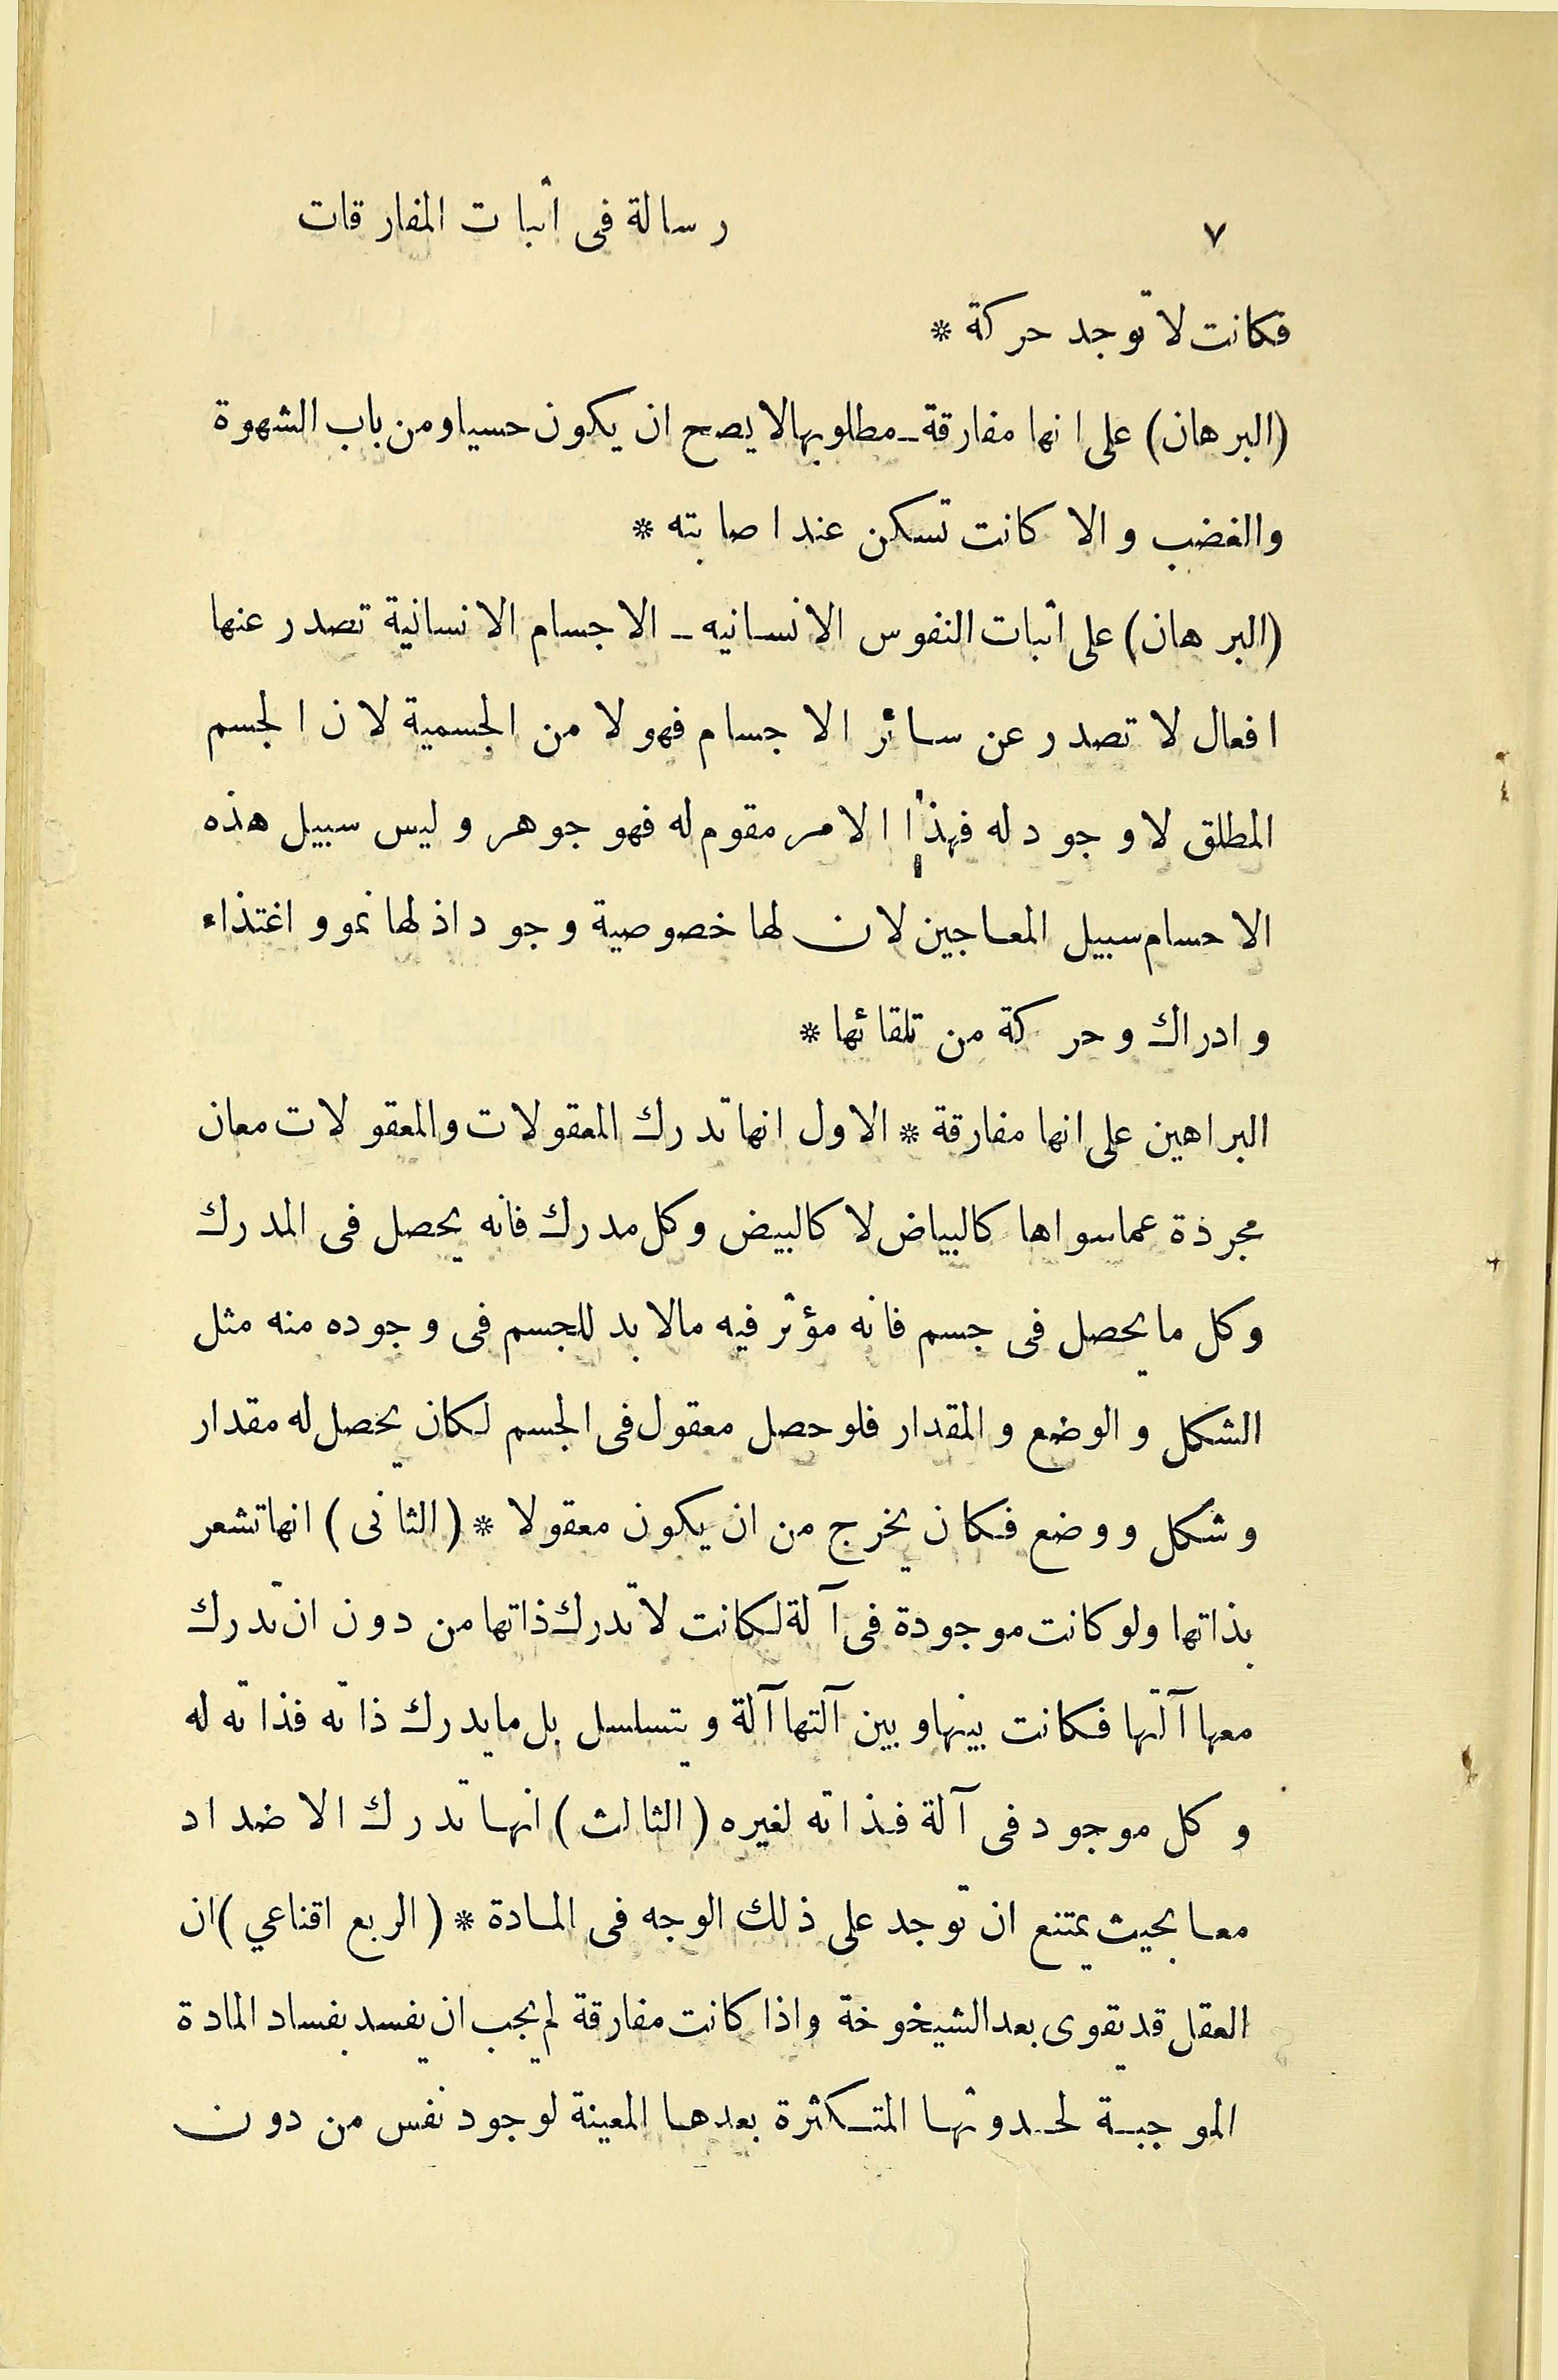 ٧ رسالة فى أثبات المفارقات
فكانت لا توجد حركة *
(البرهان) على انها مفارقة ـ مطلوبها لا يصح ان يكون حسيا ومن باب الشهوة
والغضب والا كانت تسكن عند اصابته *
(البرهان) على أثبات النفوس الانسانيه ـ الاجسام الانسانية تصدر عنها
افعال لا تصدر عن سائر الاجسام فهو لا من الجسمية لان الجسم
المطلق لا وجود له فهذا الامر مقوم له فهو جوهر وليس سبيل هذه
الاحسام سبيل المعاجين لان لها خصوصية وجود اذ لها نمو و اغتذاء
وادراك وحركة من تلقائها *
البراهين على انها مفارقة * الاول انها تدرك المعقولات والمعقولات معان
مجرذة عما سواها كالبياض لا كالبيض وكل مدرك فانه يحصل فى المدرك
وكل ما يحصل فى جسم فانه مؤثر فيه مالا بد للجسم فى وجوده منه مثل
الشكل والوضع والمقدار فلو حصل معقول فى الجسم لكان يحصل له مقدار
وشكل ووضع فكان يخرج من ان يكون معقولا * (الثانى) انها تشعر
بذاتها ولو كانت موجودة فى آلة لكانت لا تدرك ذاتها من دون ان تدرك
معها آلتها فكانت بينها وبين آلتها آلة ويتسلسل بل ما يدرك ذاته فذاته له
وكل موجود فى آلة فذاته لغيره (الثالث) انها تدرك الاضداد
معا بحيث يمتنع ان توجد على ذلك الوجه فى المادة * (الربع اقناعي) ان
العقل قد يقوى بعد الشيخوخة واذا كانت مفارقة لم يجب ان يفسد بفساد المادة
الموجبة لحدوثها المتكثرة بعدها المعينة لوجود نفس من دون